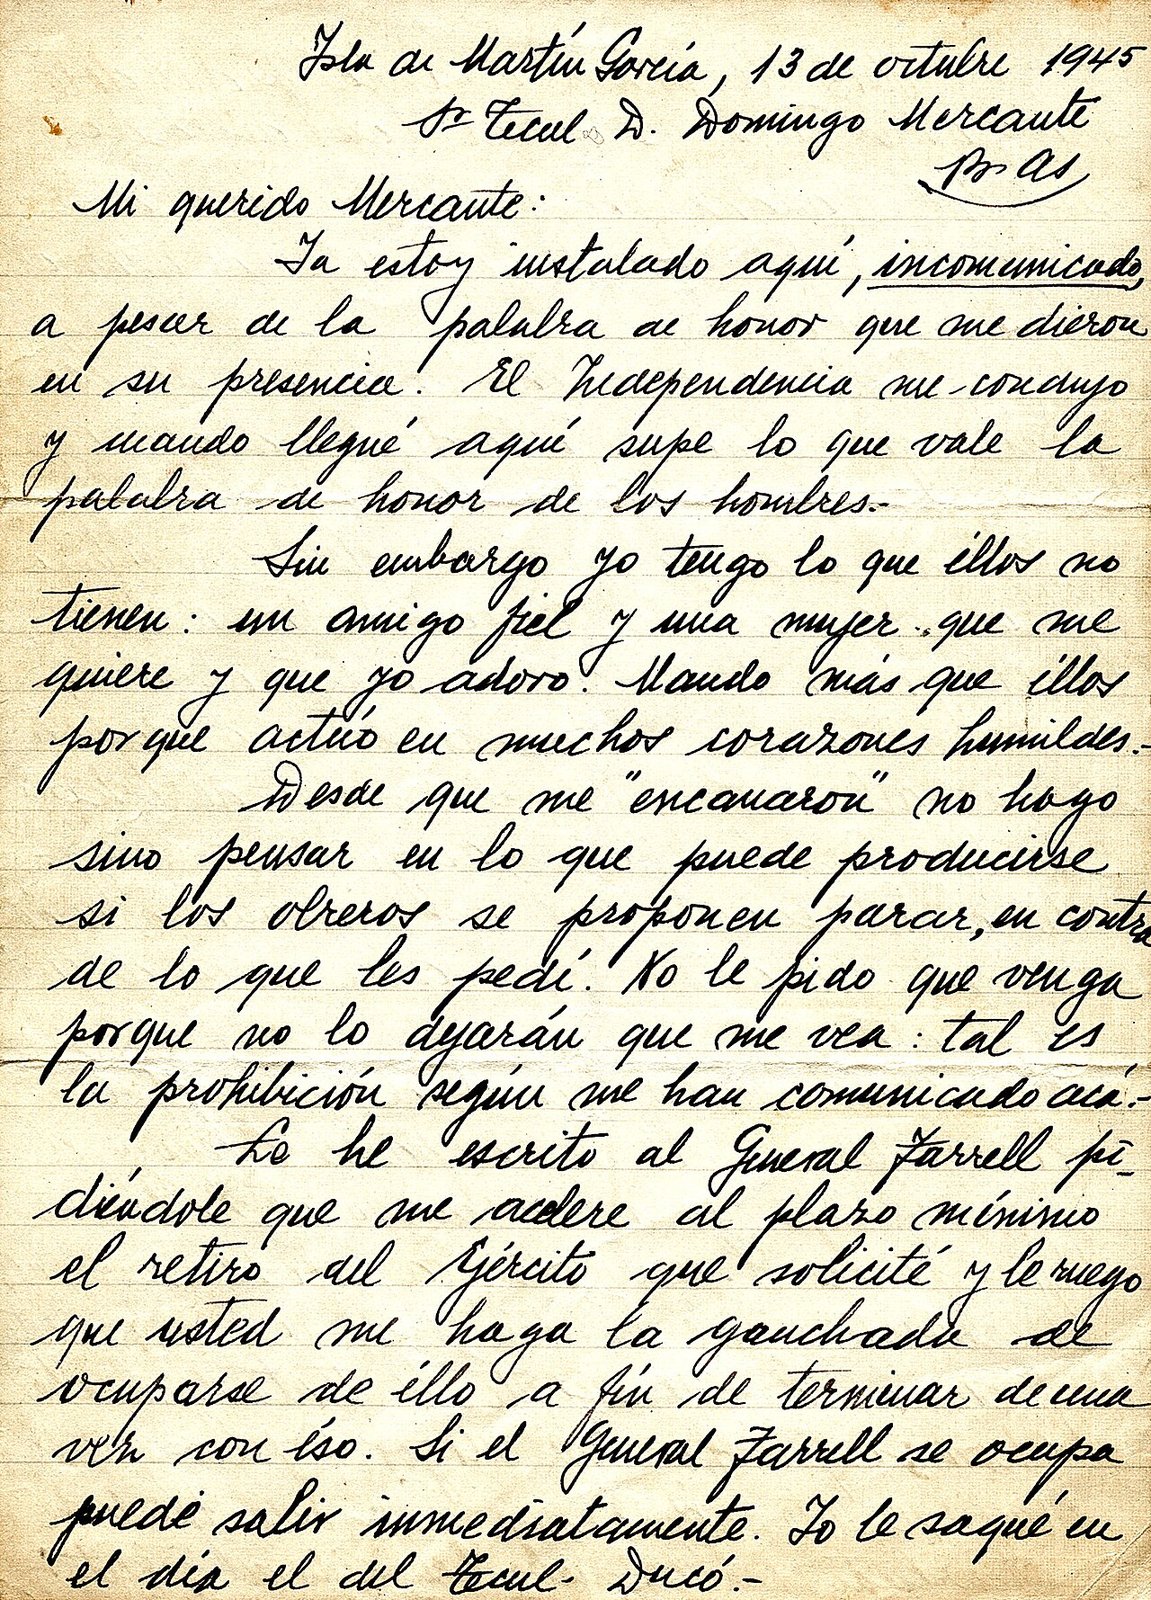 Isla de Martín García, 13 de octubre 1945
Sr Tecnel D. Domingo Mercante
Bs As
Mi querido Mercante:
Ya estoy instalado aquí, incomunicado,
a pesar de la palabra de honor que me dieron
en su presencia. El Independencia me condujo
y cuando llegué aquí supe lo que vale la
palabra de honor de los hombres.-
Sin embargo yo tengo lo que éllos no
tienen: un amigo fiel y una mujer que me
quiere y que yo adoro. Mando más que éllos
porque actúo en muchos corazones humildes.-
Desde que me "encanaron" no hago
sino pensar en lo que puede producirse
si los obreros se proponen parar, en contra
de lo que les pedí. No le pido que venga
porque no lo dejarán que me vea: tal es
la prohibición según me han comunicado acá.-
Le he escrito al General Farrell pi-
diéndole que me acelere al plazo mínimo
el retiro del Ejército que solicité y le ruego
que usted me haga la gauchada de
ocuparse de éllo a fín de terminar de una
vez con éso. Si el General Farrell se ocupa
puede salir inmediatamente. Yo le saqué en
el día el del Tecnel. Ducó.-